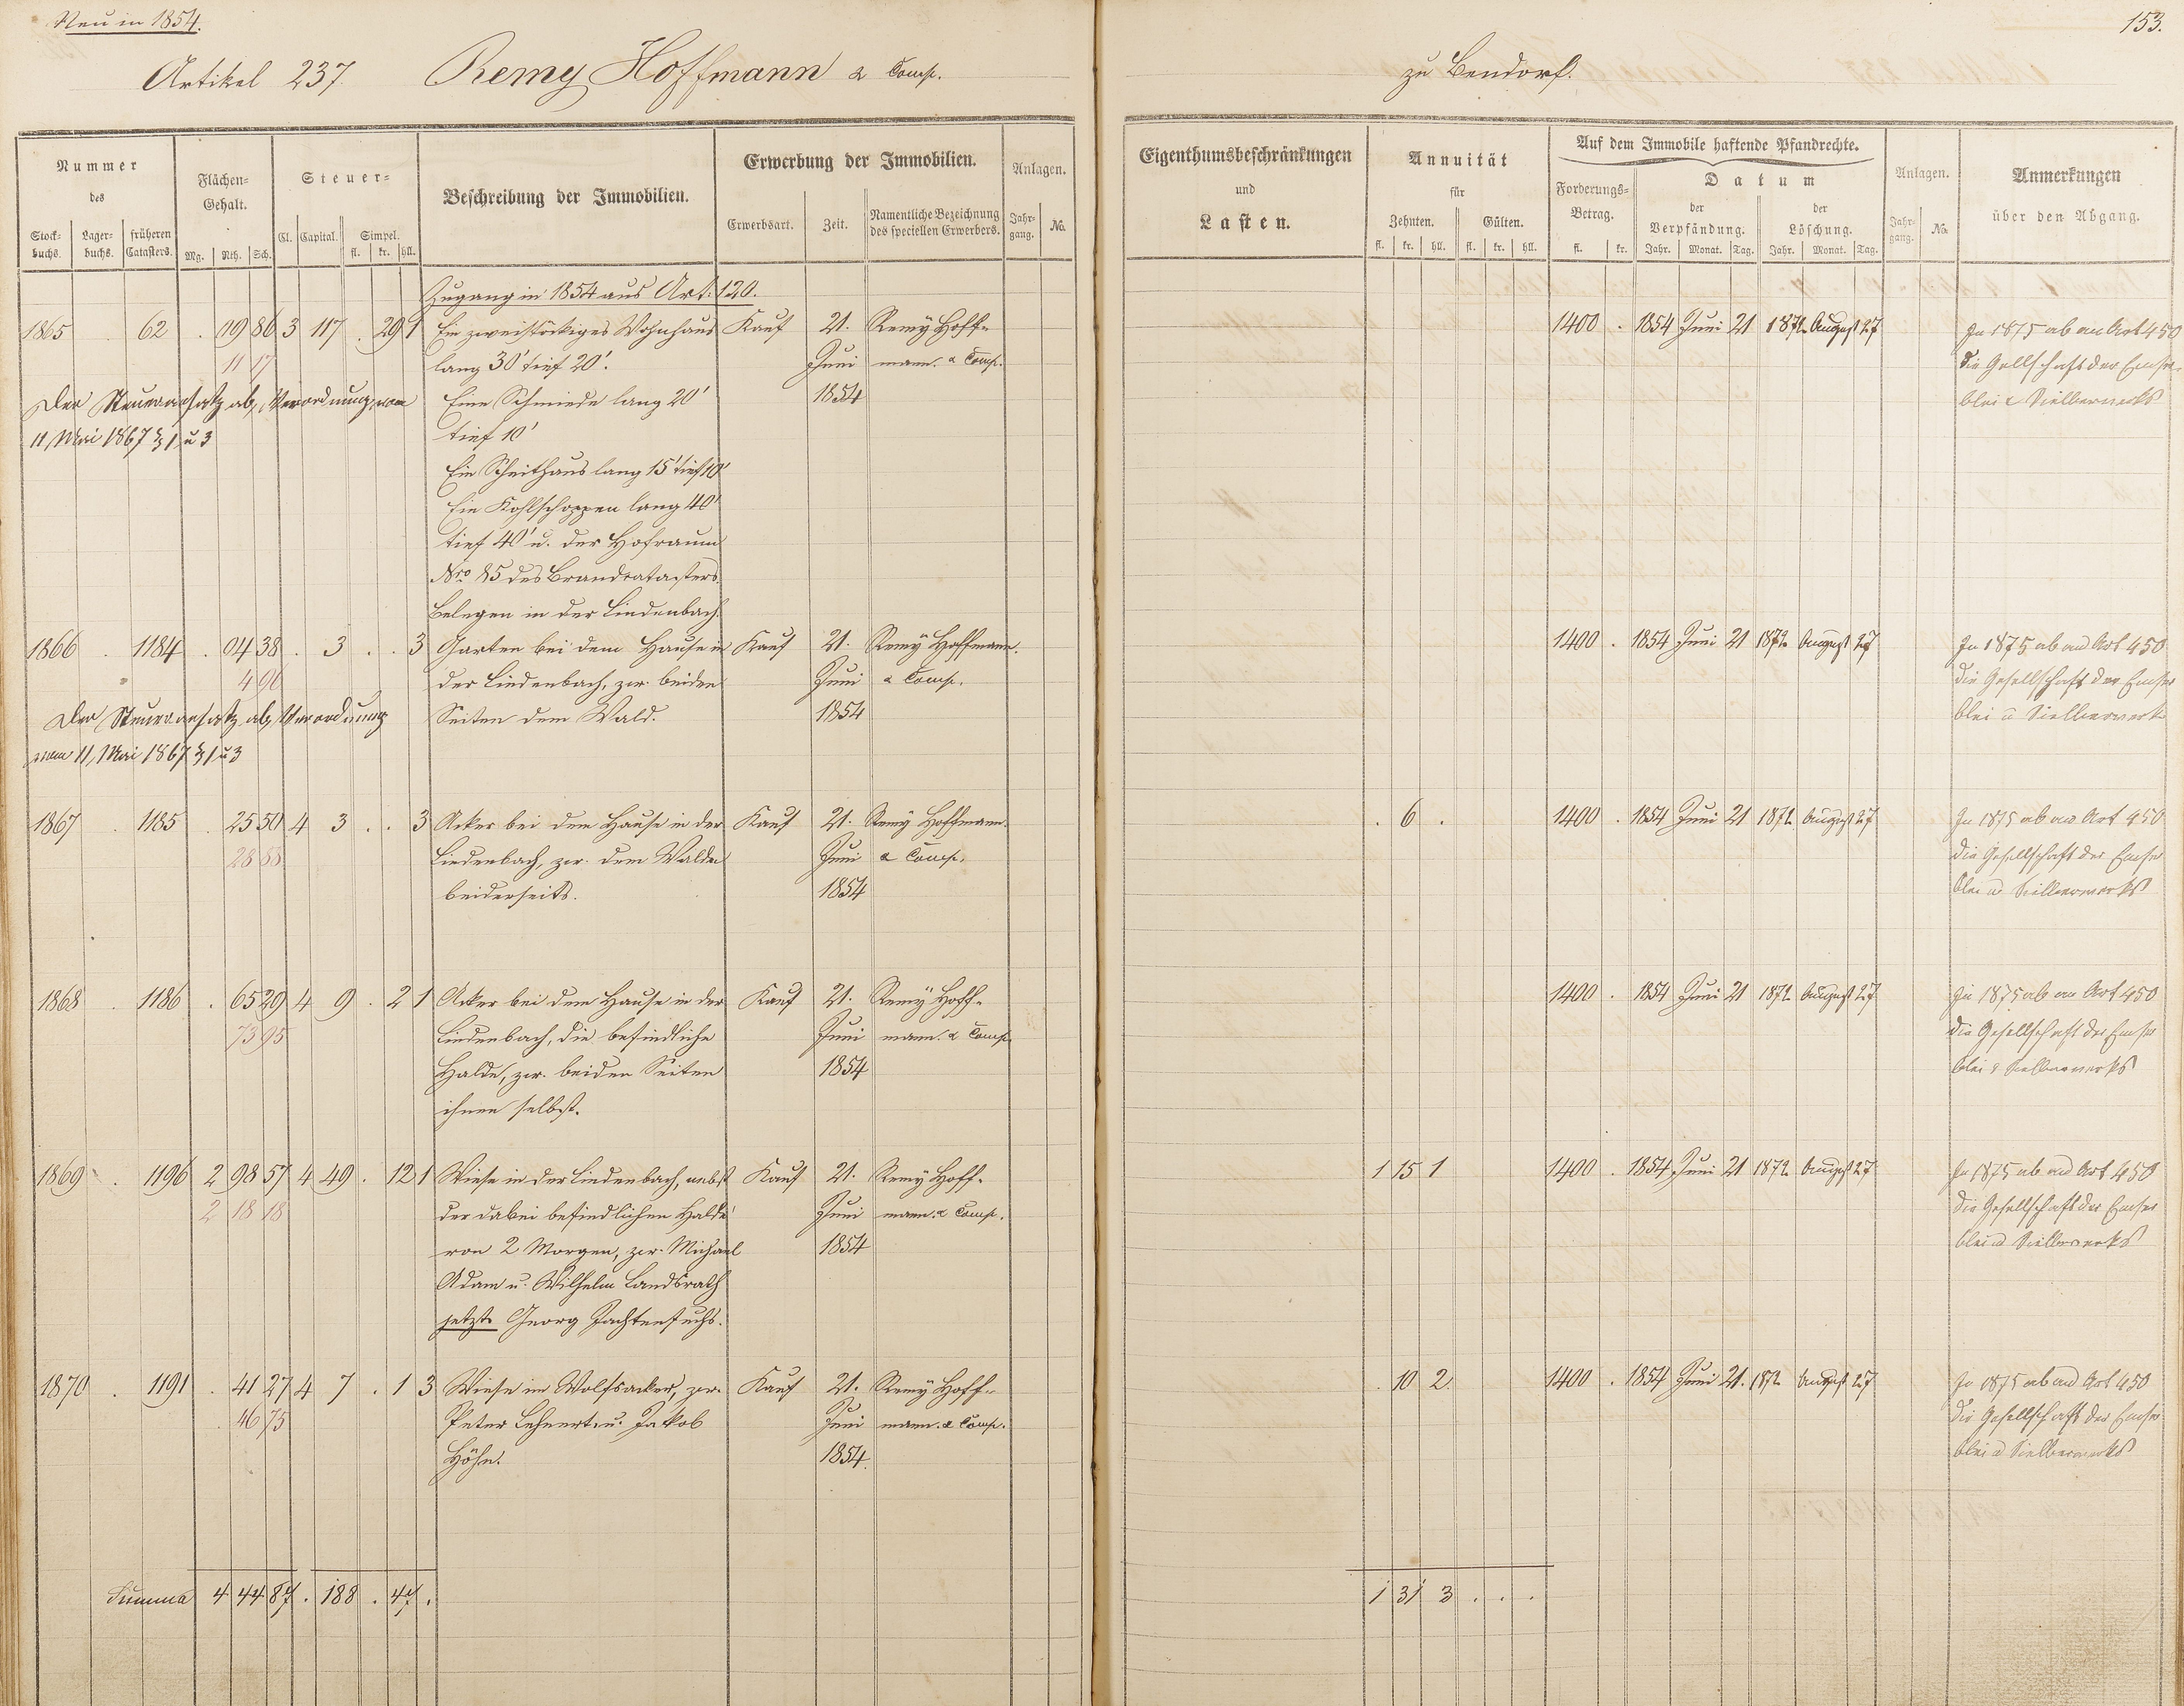 Neu in 1854.
153.
Artikel 237. Remy Hoffmann & Comp. zu Bendorf.
Nummer des
Stock-buchs. Lager-buchs. früheren Catasters.
Flächen-Gehalt.
Mg. Rth. Sch.
Steuer-
Cl. Capital. Simpel. fl. kr. hll.
Beschreibung der Immobilien.
Erwerbung der Immobilien.
Erwerbsart. Zeit. Namentliche Bezeichnung des speciellen Erwerbers.
Anlagen.
Jahr-gang. No.
Eigenthumsbeschränkungen und Lasten.
Annuität für
Zehnten. Gülten.
fl. kr. hll. fl. kr. hll.
Auf dem Immobile haftende Pfandrechte.
Forderungs-Betrag. fl. kr.
Datum
der Verpfändung. der Löschung.
Jahr. Monat. Tag. Jahr. Monat. Tag.
Anlagen.
Jahr-gang. No.
Anmerkungen über den Abgang.
Zugang in 1854 aus Art. 120.
1865 . 62 . 19 86 3 117 . 29 1 Ein zweistöckiges Wohnhaus Kauf 21. Remÿ Hoff- 1400 . 1854 Juni 21 1872 August 27 In 1875 ab an Art 450
11 17 lang 30' tief 20'. Juni mann. & Comp. die Gesellschaft der Emser
Der Steueransatz ab, Verordnung vom Eine Schmiede lang 20' 1854 Blei &
11, Mai 1867 § 1 u 3 tief 10'
Ein Scheithaus lang 15' tief 10'
Ein Kohlschoppen lang 40'
tief 40' u. der Hofraum
Nro 85 des Brandcatasters.
Belegen in der Lindenbach.
1866 . 1184 . 04 38 . 3 . . 3 Garten bei dem Hause in Kauf 21. Remÿ Hoffmann. 1400 . 1854 Juni 21 1872 August 27 In 1875 ab an Art 450
4 90 der Lindenbach, zw. beiden Juni & Comp. die Gesellschaft der Emser
Der Steueransatz ab, Verordnung Seiten dem Wald. 1854 Blei u
vom 11, Mai 1867 § 1 u 3
1867 . 1185 . 25 50 4 3 . . 3 Acker bei dem Hause in der Kauf 21. Remÿ Hoffmann. . 6 . 1400 . 1854 Juni 21 1872 August 27 In 1875 ab an Art 450
28 88 Lindenbach, zw. dem Walde Juni & Comp. die Gesellschaft der Emser
beiderseits. 1854 Blei u
1868 . 1186 . 65 29 4 9 . 2 1 Acker bei dem Hause in der Kauf 21. Remÿ Hoff- 1400 . 1854 Juni 21 1872 August 27 In 1875 ab an Art 450
73 95 Lindenbach, die befindliche Juni mann. & Comp. die Gesellschaft der Emser
Halde, zw. beiden Seiten 1854 Blei &
ihnen selbst.
1869 . 1196 2 98 57 4 49 . 12 1 Wiese in der Lindenbach, nebst Kauf 21. Remÿ Hoff- 1 15 1 1400 . 1854 Juni 21 1872 August 27 In 1875 ab an Art 450
2 18 18 der dabei befindlichen Halde Juni mann. & Comp. die Gesellschaft der Emser
von 2 Morgen, zw. Michael 1854 Blei u
Adam u. Wilhelm Landsrath
jetzt Georg Jachtenfuchs.
1870 . 1191 . 41 27 4 7 . 1 3 Wiese im Wolfsacker, zw. Kauf 21. Remÿ Hoff- . 10 2. 1400 . 1854 Juni 21. 1872 August 27 In 1875 ab an Art 450
46 75 Peter Lehnert u. Jakob Juni mann. & Comp. die Gesellschaft der Emser
Höhn. 1854. Blei u
Summa 4 44 87 . 188 . 47 . 1 31 3 . . .